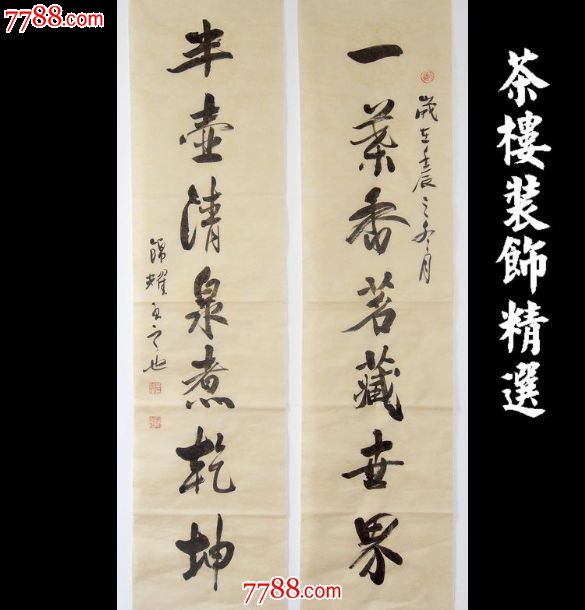 7788.com
7788.com
茶樓装飾精選
一葉香茗藏世界
歲在壬辰之冬月
半壺清泉煮乾坤
錦耀书之也
7788.com
7788.com